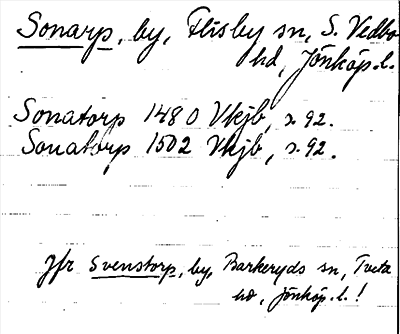 Sonarp, by, Flisby sn, S. Vedbo
hd, Jönköp. l.
Sonatorp 1480 Vkjb, s. 92.
Sonatorp 1502 Vkjb, s. 92.
Jfr Svenstorp, by, Barkeryds sn, Tveta
hd, Jönköp. l.!